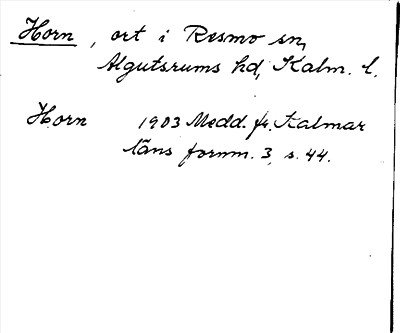 Horn, ort i Resmo sn,
Algutsrums hd, Kalm. l.
Horn 1903 Medd. fr. Kalmar
läns fornm. 3, s. 44.